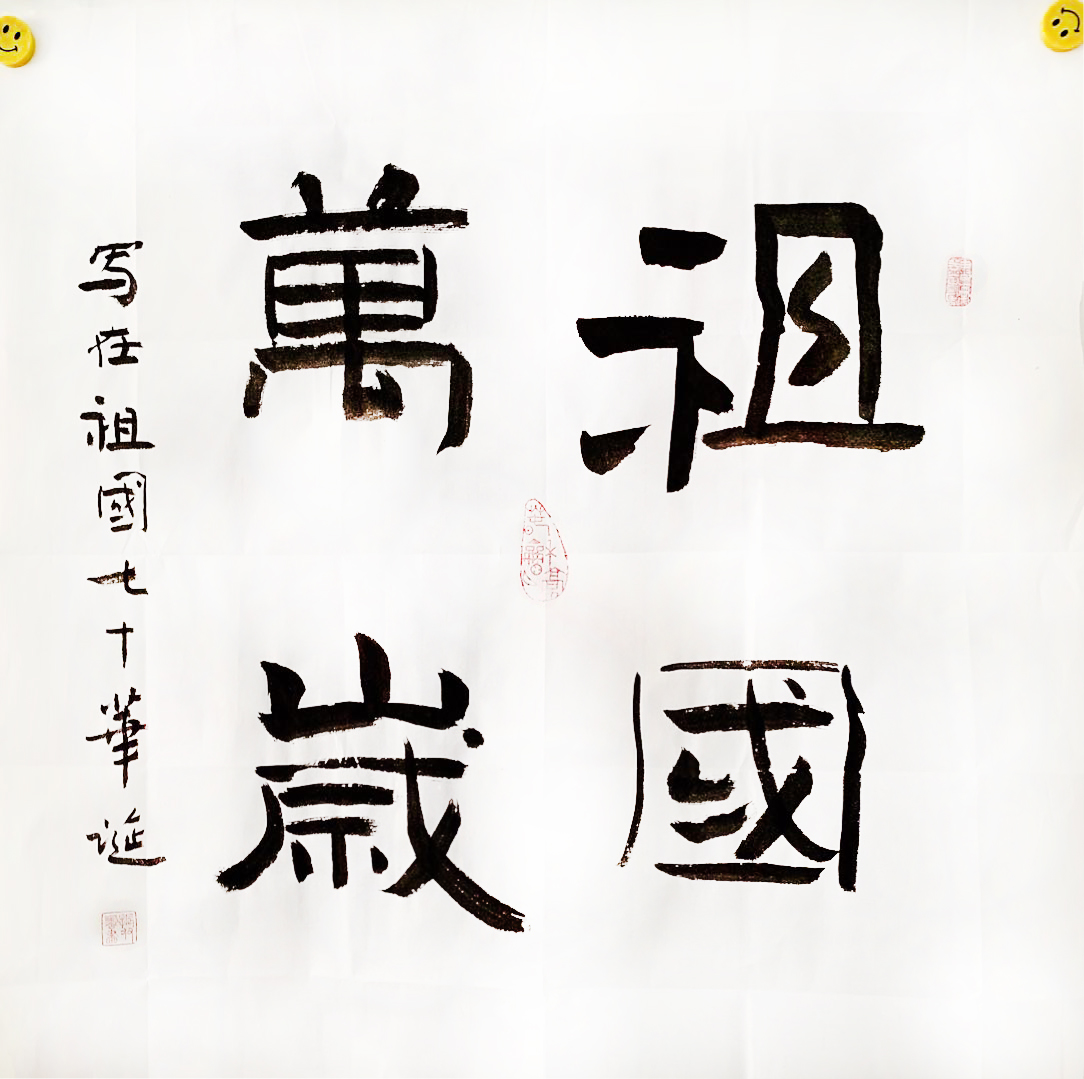 祖國
萬歲
写在祖國七十華诞